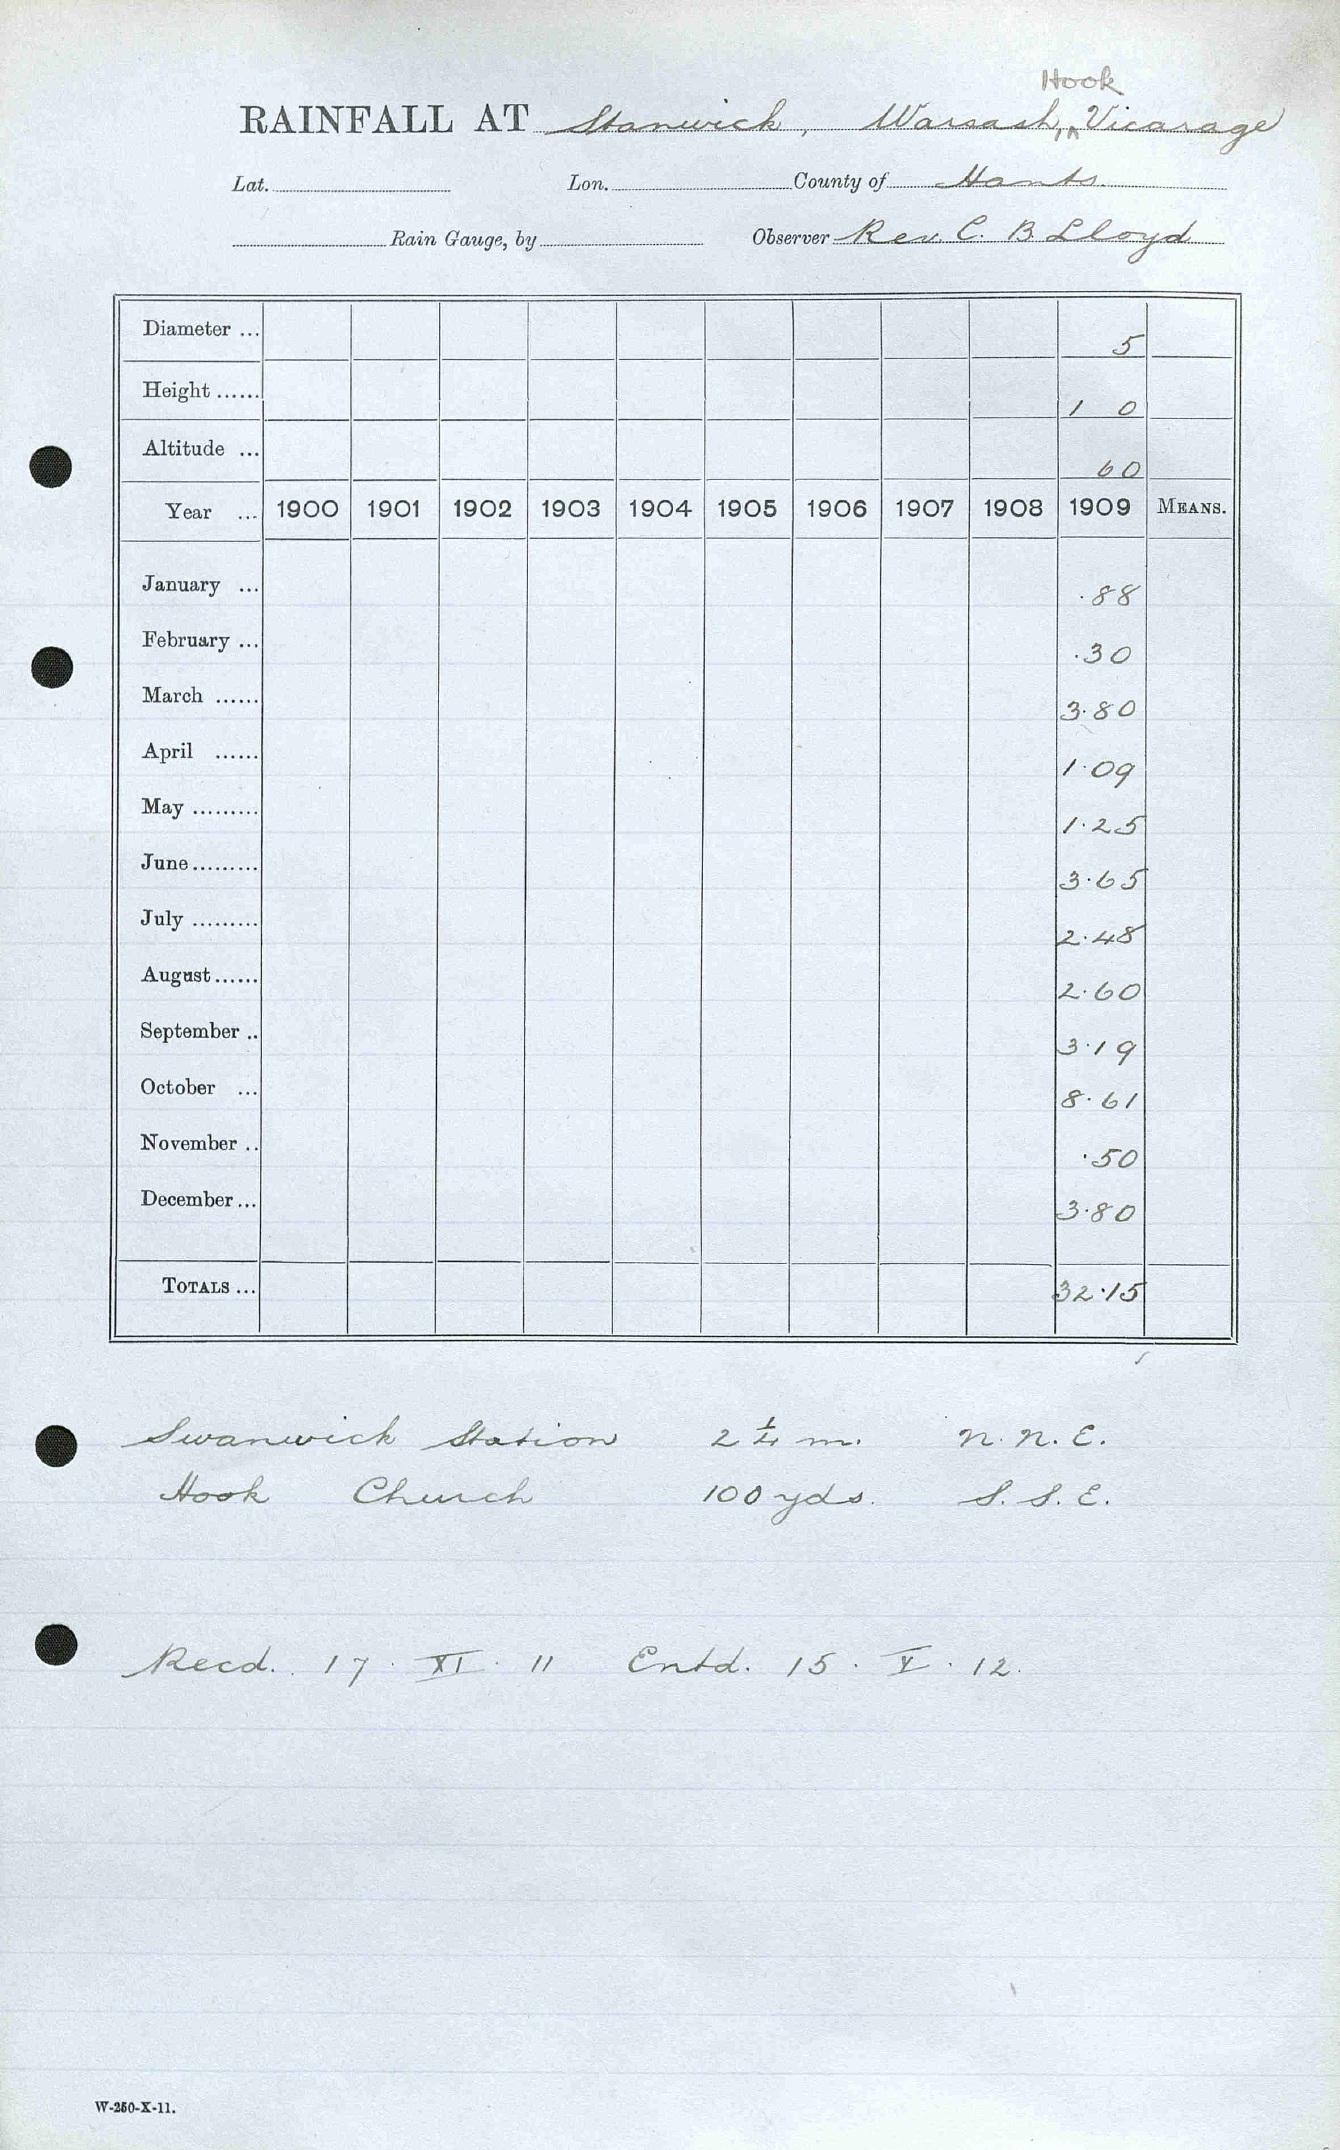 Hook
RAINFALL AT Stanwick, Warsash, ^ Vicarage
Lat. Lon. County of Hants.
Rain Gauge, by Observer Rev. C. B. Lloyd
Diameter ... 5
Height ...... 1 0
Altitude ... 60
Year ... 1900 1901 1902 1903 1904 1905 1906 1907 1908 1909 MEANS.
January ... .88
February ... .30
March ...... 3.80
April ...... 1.09
May ......... 1.25
June ......... 3.65
July ......... 2.48
August ...... 2.60
September .. 3.19
October ... 8.61
November .. .50
December ... 3.80
TOTALS ... 32.15
Swanwick Station 2 1/4 m. N. N. E.
Hook Church 100 yds. S. S. E.
Recd. 17. XI. 11 Entd. 15. V. 12.
W-250-X-11.